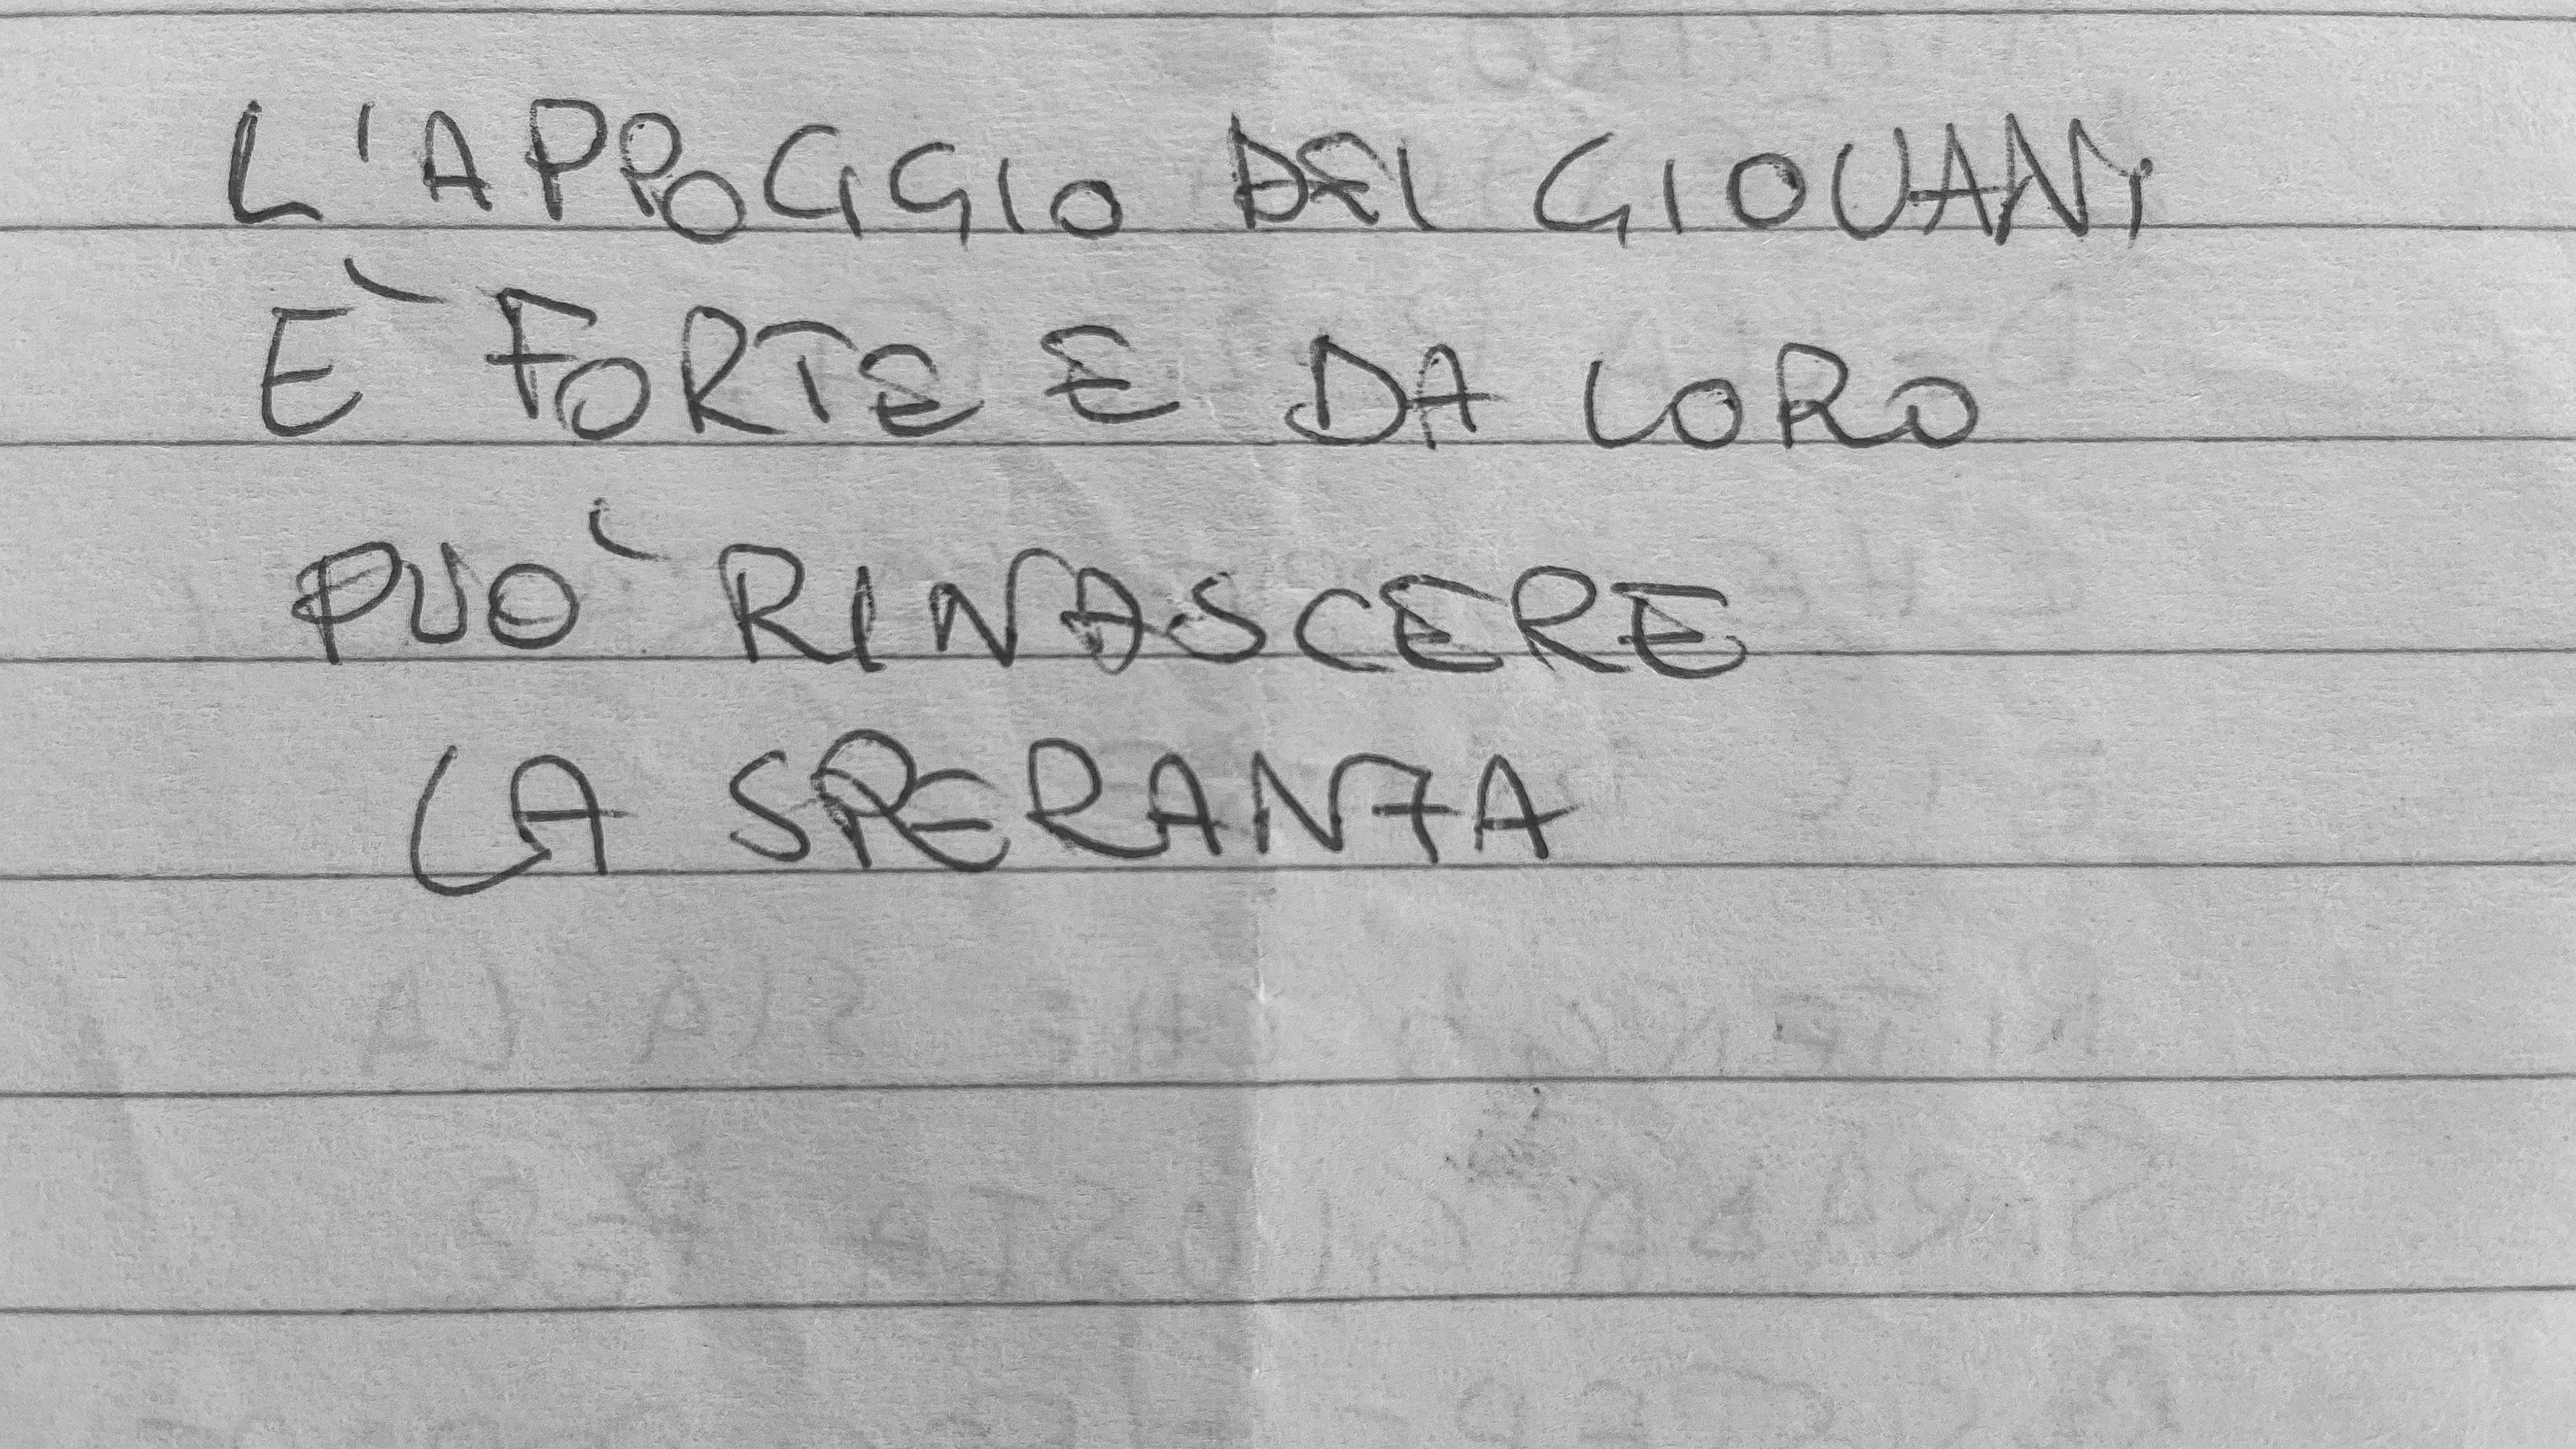 L'APPOGGIO DEI GIOVANI
E' FORTE E DA LORO
PUO' RINASCERE
LA SPERANZA